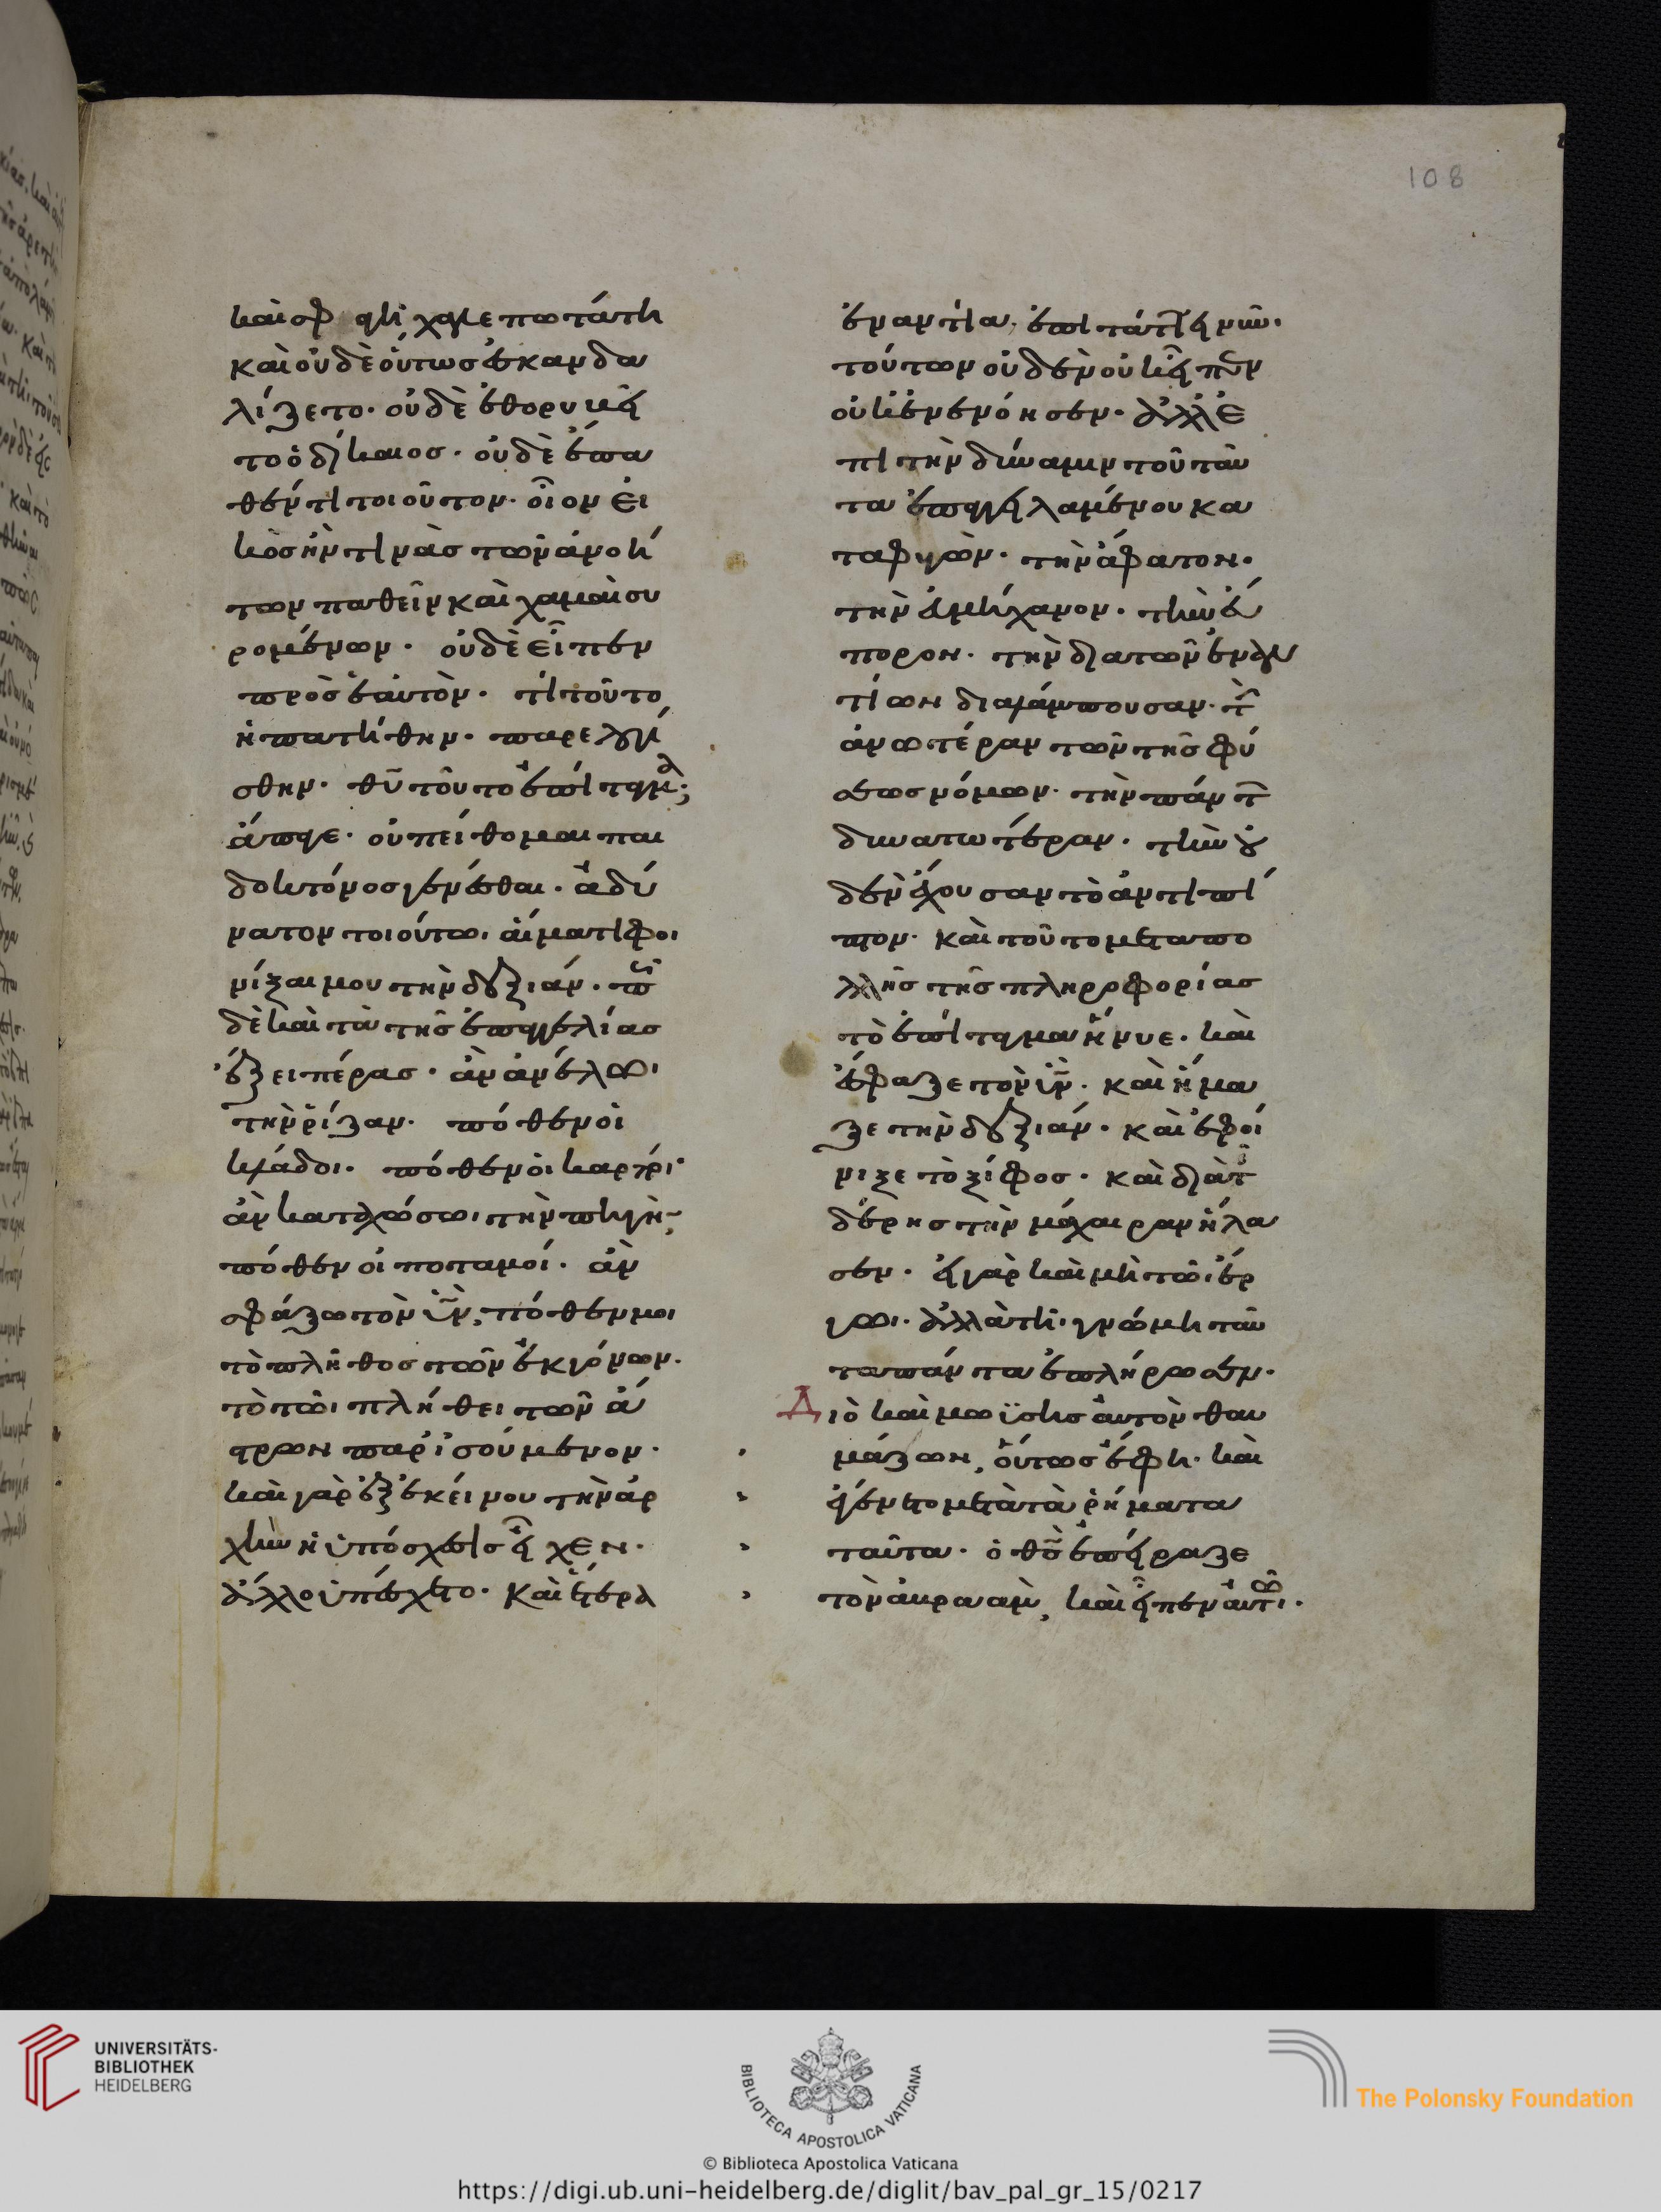 καὶ σφαγὴ χαλεπωτάτη
καὶ οὐδὲ οὕτως ἐσκανδα
λίζετο· οὐδὲ ἐθορυβεῖ
το ὁ δίκαιος· οὐδὲ ἔπα
θέν τι τοιοῦτον· οἷον εἰ
κὸς ἦν τινὰς τῶν ἀνοή
των παθεῖν καὶ χαμαὶ συ
ρομένων· οὐδὲ εἶπεν
πρὸς ἑαυτὸν· τί τοῦτο
ἠπατήθην· παρελογί
σθην· θῦ τοῦτο ἐπίταγμα;
ἄπαγε· οὐ πείθομαι παι
δοκτόνος γενέσθαι· ἀδύ
νατον τοιούτωι αἵματι φοι
νίξαι μου τὴν δεξιάν· πῶς
δὲ καὶ τὰ τῆς ἐπαγγελίας
ἕξει πέρας· ἂν ἀνέλωι
τὴν ῥίζαν· πόθεν οἱ
κλάδοι· πόθεν οἱ καρποί·
ἂν καταχώσωι τὴν πηγὴν;
πόθεν οἱ ποταμοί· ἂν
σφάξω τὸν ὑν, πόθεν μοι
τὸ πλῆθος τῶν ἐκγόνων·
τὸ τῶι πλήθει τῶν ἄ
στρων παρισούμενον·
καὶ γὰρ ἐξ ἐκείνου τὴν ἀρ
χὴν ἡ ὑπόσχεσις εἶχεν·
ἀλλ' ὁ ὑπέσχετο· καὶ ἕτερα
ἐναντία· ἐπιτάττει νῦν·
τούτων οὐδὲν οὐκ εἶπεν
οὐκ ἐνενόησεν· ἀλλ' ἐ
πὶ τὴν δύναμιν τοῦ ταῦ
τα ἐπαγγειλαμένου κα
ταφυγὼν· τὴν ἄφατον·
τὴν ἀμήχανον· τὴν εὔ
πορον· τὴν διὰ τῶν ἐναν
τίων διαλάμπουσαν· τὴν
ἀνωτέραν τῶν τῆς φύ
σεως νόμων· τὴν πάντων
δυνατωτέραν· τὴν οὐ
δὲν ἔχουσαν τὸ ἀντιπί
πτον· καὶ τοῦτο μετὰ πο
λλῆς τῆς πληροφορίας
τὸ ἐπίταγμα ἤνυε· καὶ
ἔσφαξε τὸν ὑν· καὶ ἥμα
ξε τὴν δεξιάν· καὶ ἐφοί
νιξε τὸ ξίφος· καὶ διὰ τῆς
δέρης τὴν μάχαιραν ἤλα
σεν· εἰ γὰρ καὶ μὴ τῶι ἔρ
γωι· ἀλλὰ τῆι γνώμη ταῦ
τα πάντα ἐπλήρωσεν·
Διὸ καὶ μωϋσῆς αὐτὸν θαυ
μάζων, οὕτως ἔφη· καὶ
ἐγένετο μετὰ τὰ ῥήματα
ταῦτα· ὁ θς ἐπείραζε
τὸν ἁβραὰμ, καὶ εἶπεν αὐτῶι·
108
UNIVERSITÄTS-
BIBLIOTHEK
HEIDELBERG
BIBLIOTECA APOSTOLICA VATICANA
The Polonsky Foundation
© Biblioteca Apostolica Vaticana
https://digi.ub.uni-heidelberg.de/diglit/bav_pal_gr_15/0217